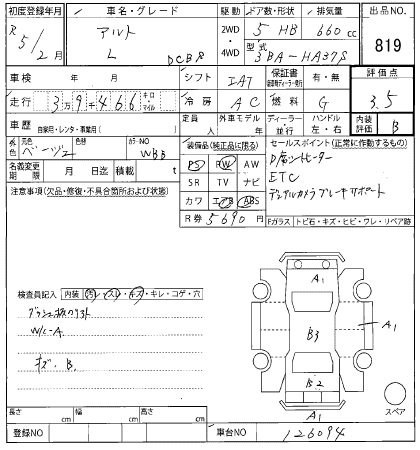 初度登録年月 車名・グレード 駆動 ドア数・形状 排気量 出品NO.
R 5/2月 アルト L DCBS 2WD・4WD 5 HB 660cc 819
型式 3BA-HA37S
車検 年 月 シフト IAT 保証書 有・無 評価点
走行 3万9千466 キロ・マイル 冷房 AC 燃料 G 3.5
車歴 自家用・レンタ・事業用( ) 定員 人 外車モデル 年 ディーラー・並行 ハンドル 左・右 内装評価 B
外色 元色 ベージュ2T 色替 カラーNO WBB
名義変更期限 月 日迄 積載 t
装備品(純正品に限る)
PS PW AW
SR TV ナビ
カワ エアB ABS
R券 5690円
セールスポイント(正常に作動するもの)
D席シートヒーター
ETC
デュアルカメラブレーキサポート
注意事項(欠品・修復・不具合箇所および状態)
Fガラス トビ石・キズ・ヒビ・ワレ・リペア跡
検査員記入 内装 汚レ・スレ・キズ・キレ・コゲ・穴
W/C-A
キズ・B.
A1
B3
A1
B2
A1
スペア
長さ cm 幅 cm 高さ cm
登録NO 車台NO 126094